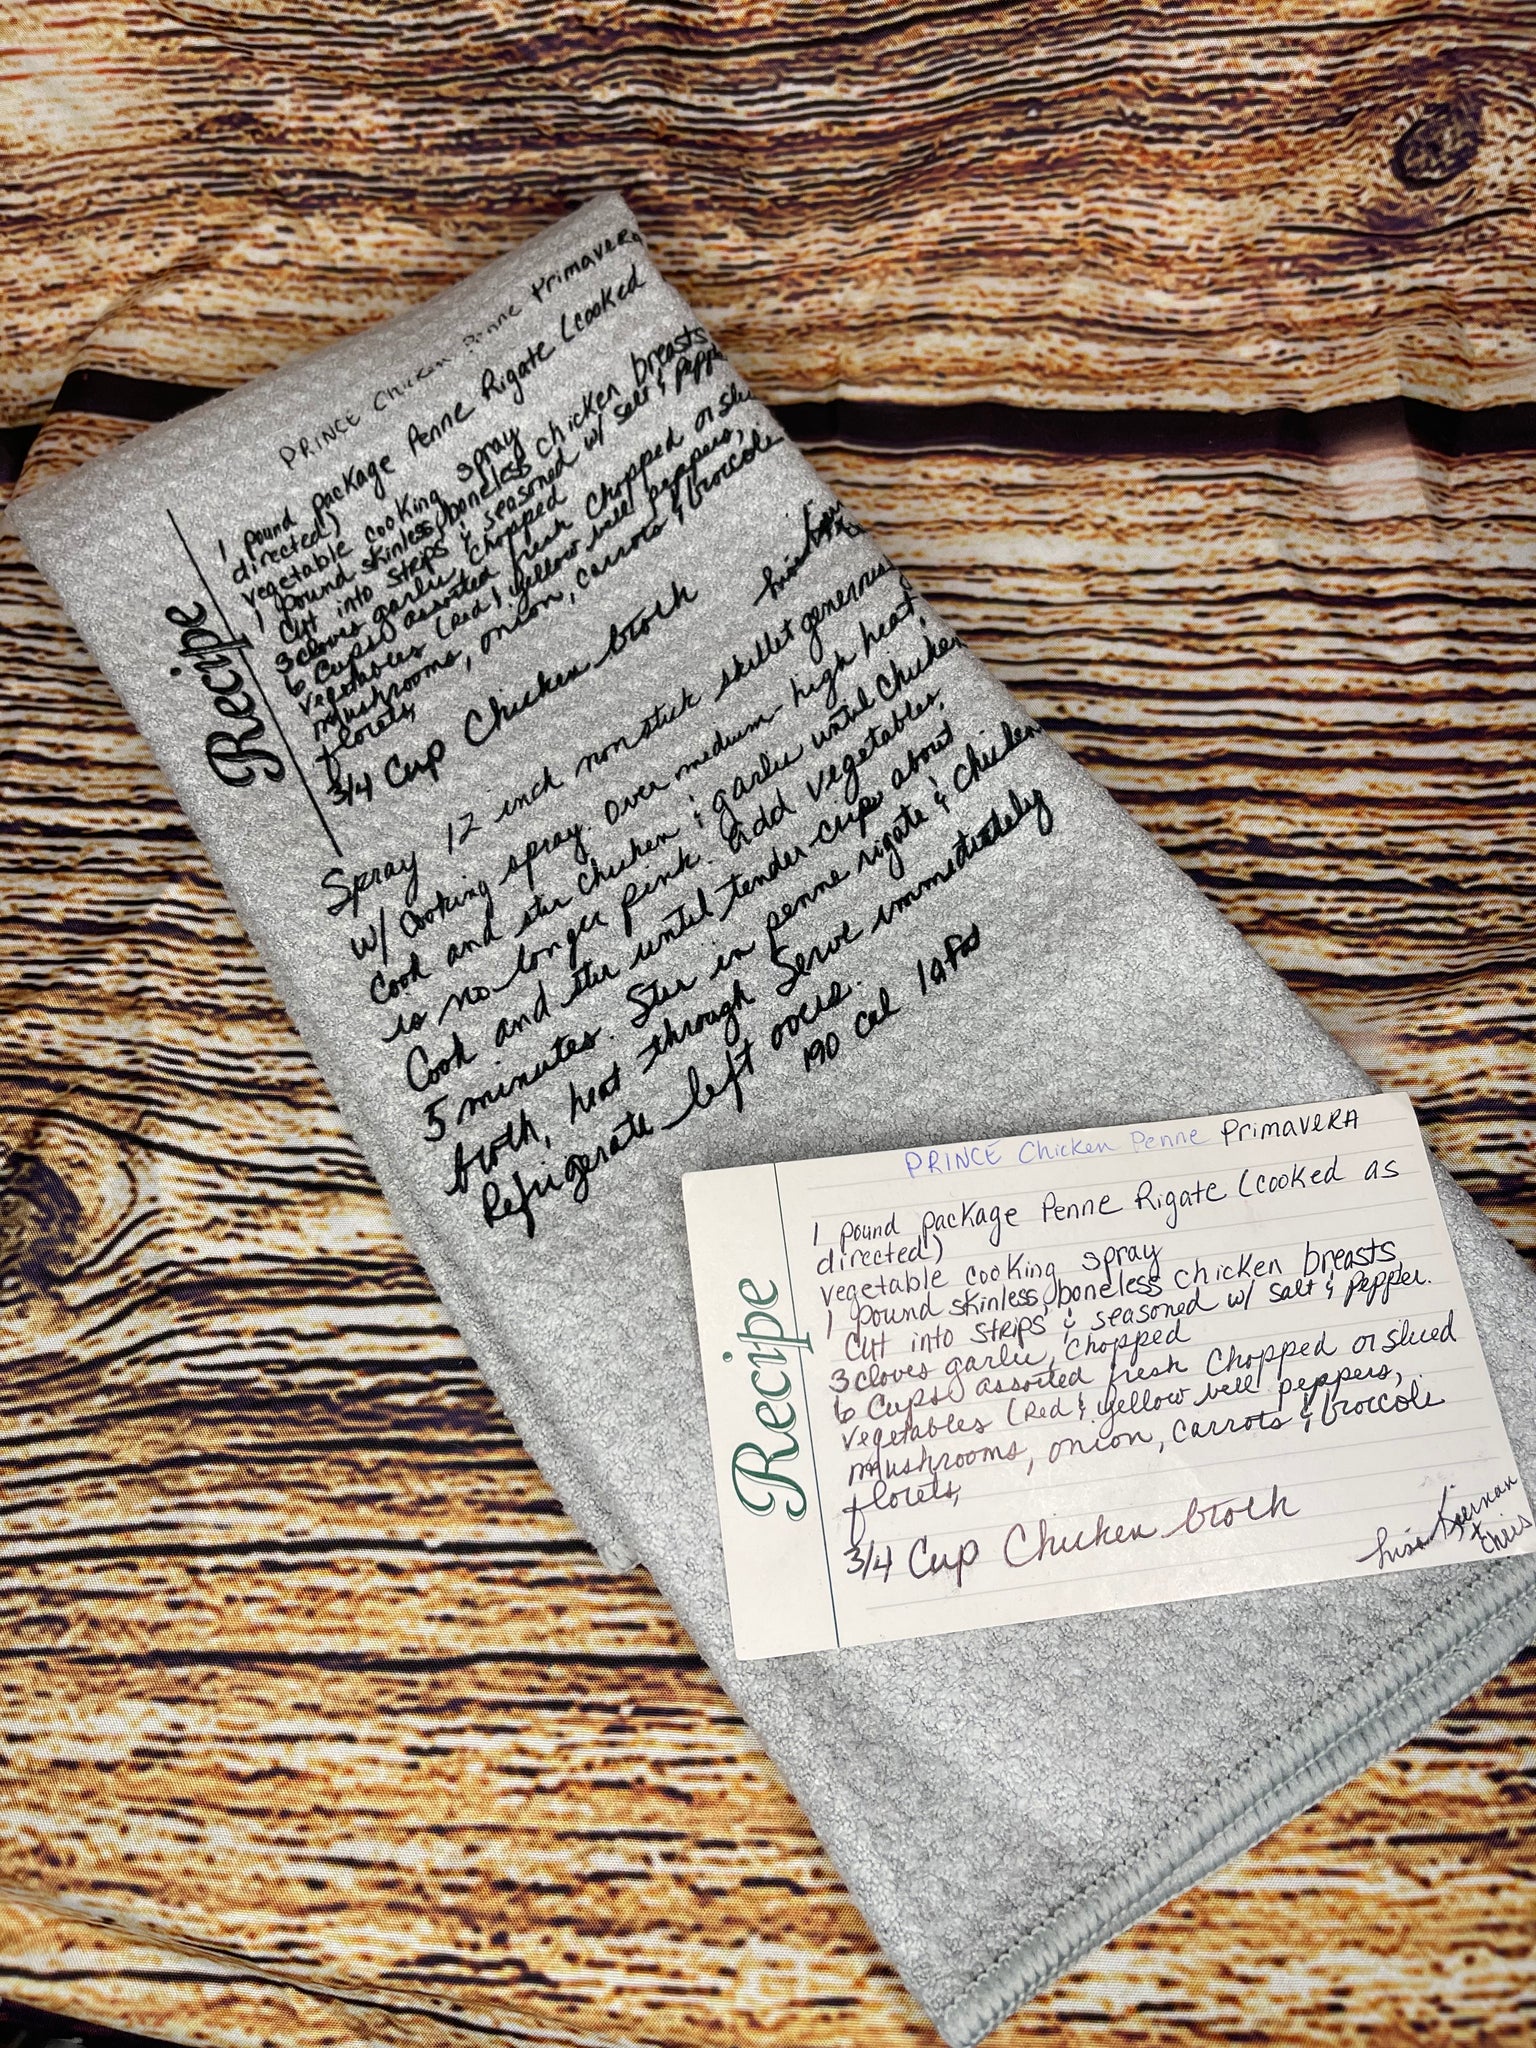 PRINCE Chicken Penne PrimavERA
Recipe
1 pound package Penne Rigate (cooked
directed)
vegetable cooking spray
1 pound skinless, boneless chicken breasts
Cut into strips & seasoned w/ salt & pepper
3 cloves garlic, chopped
6 Cups assorted fresh chopped or
vegetables (Red & yellow bell peppers,
mushrooms, onion, carrots & broccoli
florets,
3/4 Cup Chicken broth
Lisa
Spray 12 inch nonstick skillet
w/ cooking spray. Over medium-high heat,
Cook and stir chicken & garlic until chicken
is no longer pink. Add vegetables.
Cook and stir until tender-crisp about
5 minutes. Stir in penne rigate & chicken
broth, heat through. Serve immediately
Refrigerate left overs.
190 Cal 1g Fat
PRINCE Chicken Penne PrimavERA
Recipe
1 pound package Penne Rigate (cooked as
directed)
vegetable cooking spray
1 pound skinless, boneless chicken breasts
Cut into strips & seasoned w/ salt & pepper.
3 cloves garlic, chopped
6 Cups assorted fresh chopped or sliced
vegetables (Red & yellow bell peppers,
mushrooms, onion, carrots & broccoli
florets,
3/4 Cup Chicken broth
Lisa Kiernan
+ Chris